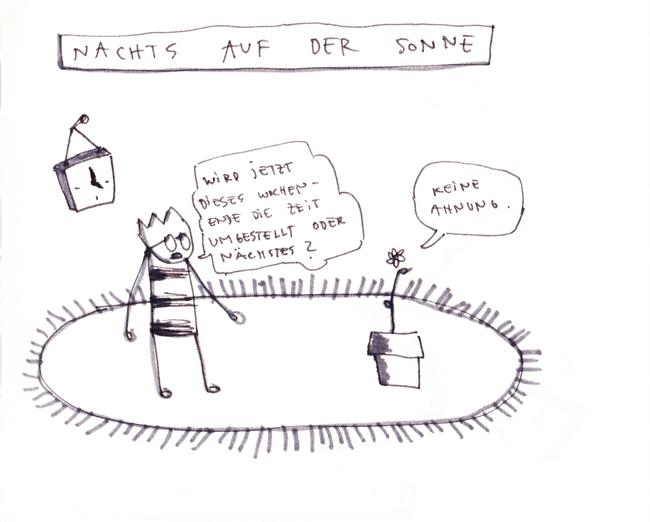 NACHTS AUF DER SONNE
WIRD JETZT
DIESES WOCHEN-
ENDE DIE ZEIT
UMGESTELLT ODER
NÄCHSTES?
KEINE
AHNUNG.